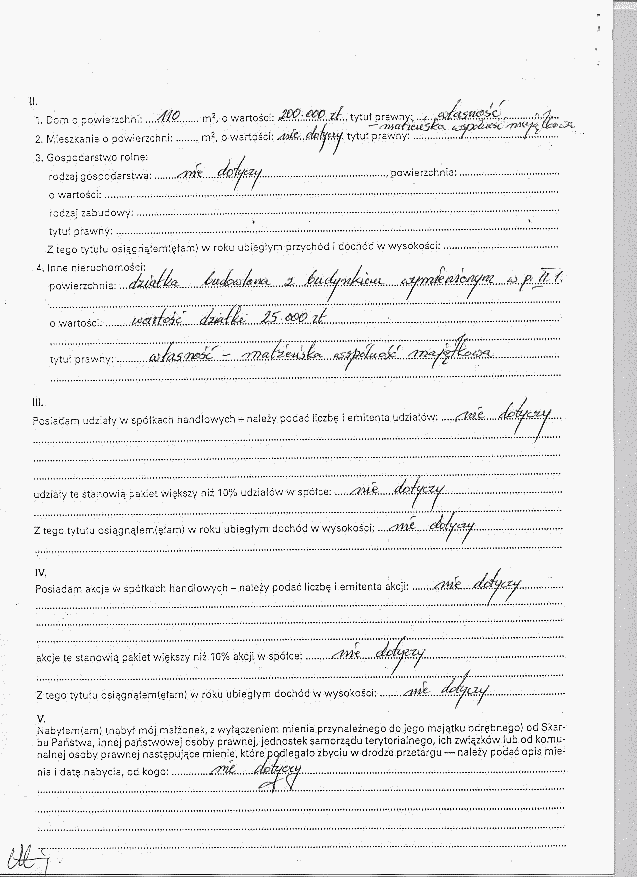 II.
1. Dom o powierzchni: 110 m², o wartości: 200.000 zł tytuł prawny: własność
- małżeńska wspólność majątkowa
2. Mieszkanie o powierzchni: m², o wartości: nie dotyczy tytuł prawny:
3. Gospodarstwo rolne:
rodzaj gospodarstwa: nie dotyczy, powierzchnia:
o wartości:
rodzaj zabudowy:
tytuł prawny:
Z tego tytułu osiągnąłem(ęłam) w roku ubiegłym przychód i dochód w wysokości:
4. Inne nieruchomości:
powierzchnia: działka budowlana z budynkiem wymienionym w p. II 1.
o wartości: wartość działki 25.000 zł
tytuł prawny: własność - małżeńska wspólność majątkowa
III.
Posiadam udziały w spółkach handlowych – należy podać liczbę i emitenta udziałów: nie dotyczy
udziały te stanowią pakiet większy niż 10% udziałów w spółce: nie dotyczy
Z tego tytułu osiągnąłem(ęłam) w roku ubiegłym dochód w wysokości: nie dotyczy
IV.
Posiadam akcje w spółkach handlowych – należy podać liczbę i emitenta akcji: nie dotyczy
akcje te stanowią pakiet większy niż 10% akcji w spółce: nie dotyczy
Z tego tytułu osiągnąłem(ęłam) w roku ubiegłym dochód w wysokości: nie dotyczy
V.
Nabyłem(am) (nabył mój małżonek, z wyłączeniem mienia przynależnego do jego majątku odrębnego) od Skar-
bu Państwa, innej państwowej osoby prawnej, jednostek samorządu terytorialnego, ich związków lub od komu-
nalnej osoby prawnej następujące mienie, które podlegało zbyciu w drodze przetargu — należy podać opis mie-
nia i datę nabycia, od kogo: nie dotyczy